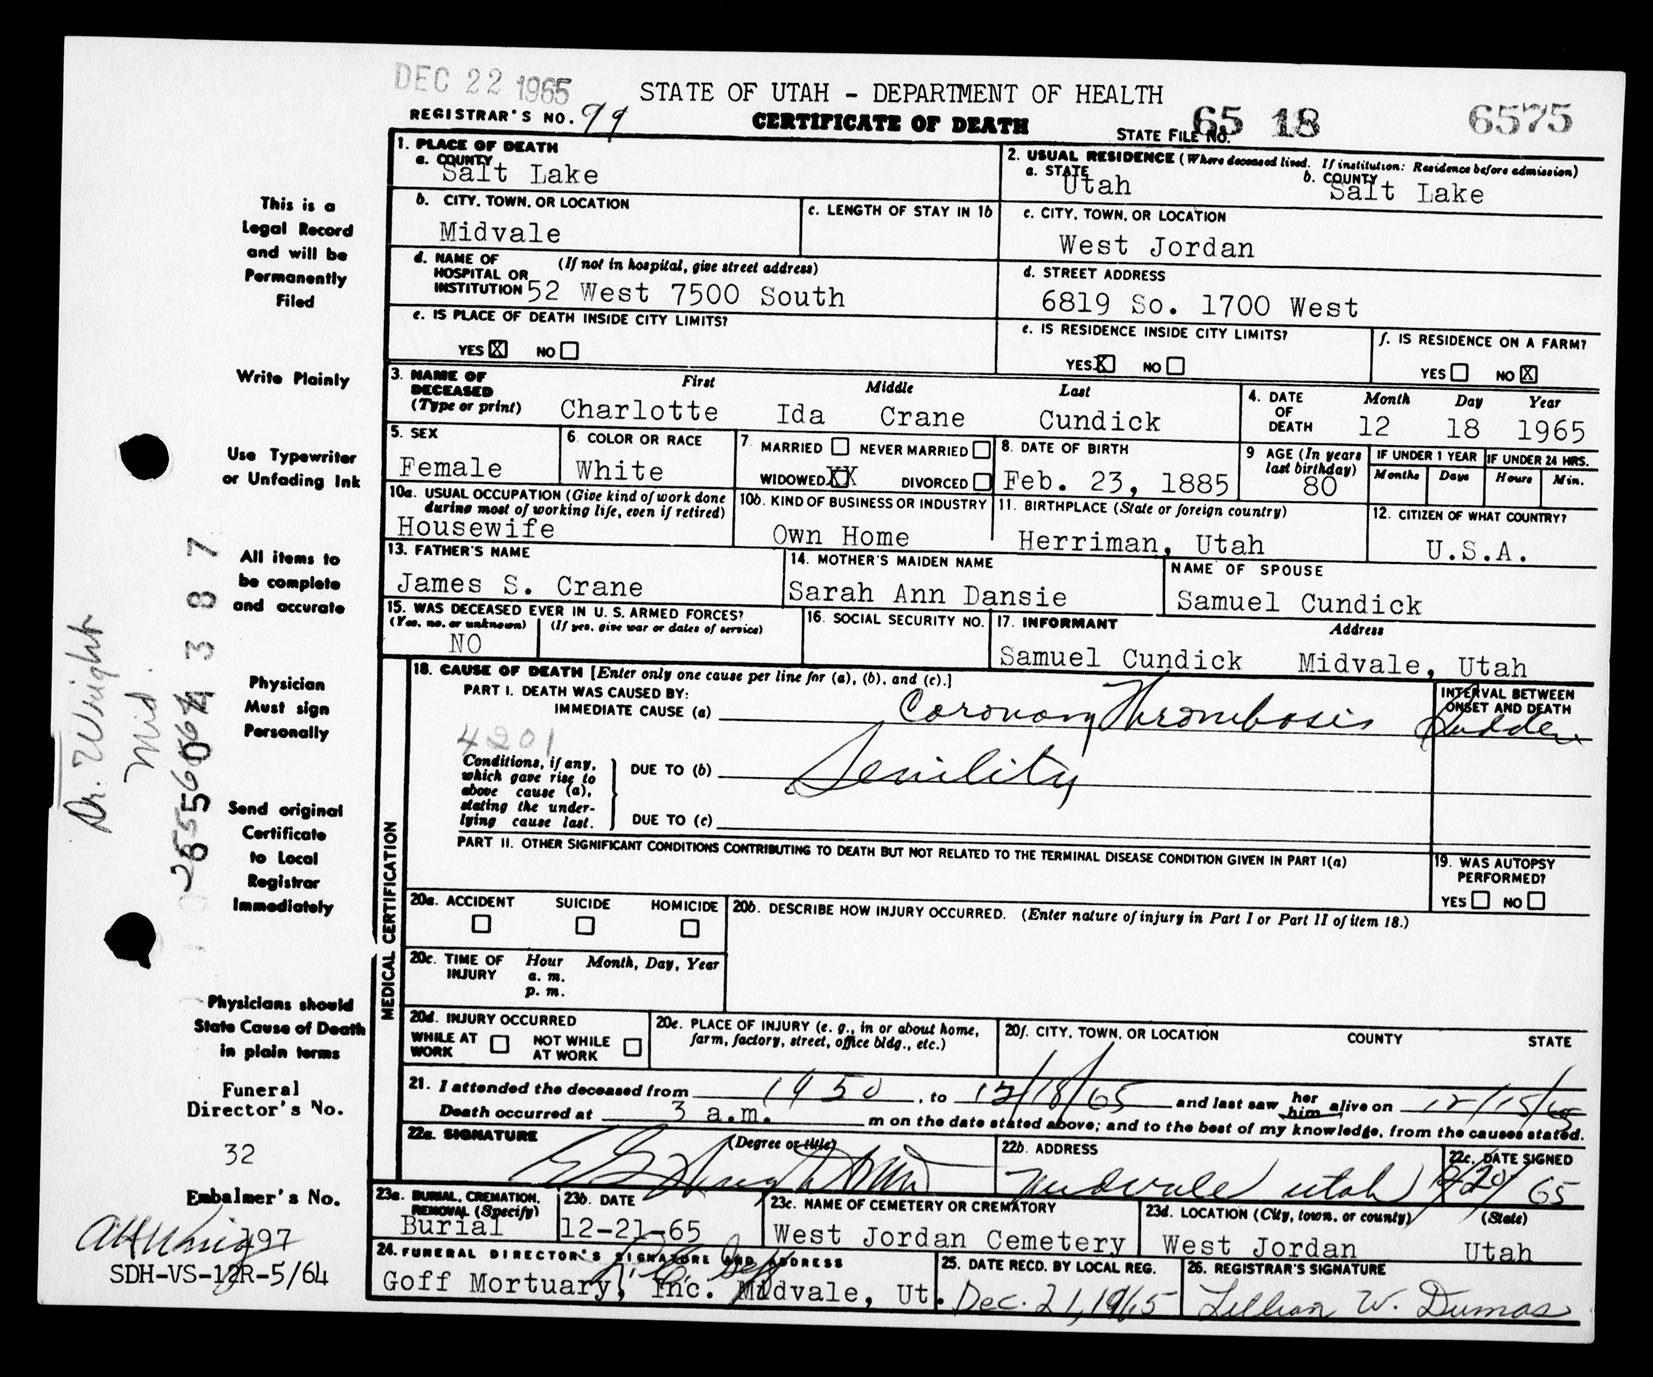 DEC 22 1965
STATE OF UTAH - DEPARTMENT OF HEALTH
REGISTRAR'S NO. 79
CERTIFICATE OF DEATH
STATE FILE NO. 65 18 6575
This is a
Legal Record
and will be
Permanently
Filed
Write Plainly
Use Typewriter
or Unfading Ink
All items to
be complete
and accurate
Physician
Must sign
Personally
Send original
Certificate
to Local
Registrar
Immediately
Physicians should
State Cause of Death
in plain terms
Funeral
Director's No.
32
Embalmer's No.
497
SDH-VS-12R-5/64
Dr. Wright
Mid.
1. PLACE OF DEATH
a. COUNTY
Salt Lake
2. USUAL RESIDENCE (Where deceased lived. If institution: Residence before admission)
a. STATE
Utah
b. COUNTY
Salt Lake
b. CITY, TOWN, OR LOCATION
Midvale
c. LENGTH OF STAY IN 1b
c. CITY, TOWN, OR LOCATION
West Jordan
d. NAME OF HOSPITAL OR INSTITUTION (If not in hospital, give street address)
52 West 7500 South
d. STREET ADDRESS
6819 So. 1700 West
e. IS PLACE OF DEATH INSIDE CITY LIMITS?
YES X NO
e. IS RESIDENCE INSIDE CITY LIMITS?
YES X NO
f. IS RESIDENCE ON A FARM?
YES NO X
3. NAME OF DECEASED (Type or print)
First Middle Last
Charlotte Ida Crane Cundick
4. DATE OF DEATH
Month Day Year
12 18 1965
5. SEX
Female
6. COLOR OR RACE
White
7. MARRIED NEVER MARRIED
WIDOWED XX DIVORCED
8. DATE OF BIRTH
Feb. 23, 1885
9 AGE (In years last birthday)
80
IF UNDER 1 YEAR
Months Days
IF UNDER 24 HRS.
Hours Min.
10a. USUAL OCCUPATION (Give kind of work done during most of working life, even if retired)
Housewife
10b. KIND OF BUSINESS OR INDUSTRY
Own Home
11. BIRTHPLACE (State or foreign country)
Herriman, Utah
12. CITIZEN OF WHAT COUNTRY?
U.S.A.
13. FATHER'S NAME
James S. Crane
14. MOTHER'S MAIDEN NAME
Sarah Ann Dansie
NAME OF SPOUSE
Samuel Cundick
15. WAS DECEASED EVER IN U.S. ARMED FORCES?
(Yes, no, or unknown) (If yes, give war or dates of service)
NO
16. SOCIAL SECURITY NO.
17. INFORMANT Address
Samuel Cundick Midvale, Utah
MEDICAL CERTIFICATION
18. CAUSE OF DEATH [Enter only one cause per line for (a), (b), and (c).]
PART I. DEATH WAS CAUSED BY:
IMMEDIATE CAUSE (a) Coronary Thrombosis
INTERVAL BETWEEN ONSET AND DEATH
Sudden
4201
Conditions, if any, which gave rise to above cause (a), stating the underlying cause last.
DUE TO (b) Senility
DUE TO (c)
PART II. OTHER SIGNIFICANT CONDITIONS CONTRIBUTING TO DEATH BUT NOT RELATED TO THE TERMINAL DISEASE CONDITION GIVEN IN PART I(a)
19. WAS AUTOPSY PERFORMED?
YES NO
20a. ACCIDENT SUICIDE HOMICIDE
20b. DESCRIBE HOW INJURY OCCURRED. (Enter nature of injury in Part I or Part II of item 18.)
20c. TIME OF INJURY
Hour Month, Day, Year
a. m.
p. m.
20d. INJURY OCCURRED
WHILE AT WORK NOT WHILE AT WORK
20e. PLACE OF INJURY (e. g., in or about home, farm, factory, street, office bldg., etc.)
20f. CITY, TOWN, OR LOCATION COUNTY STATE
21. I attended the deceased from 1950, to 12/18/65 and last saw her him alive on 12/15/65
Death occurred at 3 a.m. m on the date stated above; and to the best of my knowledge, from the causes stated.
22a. SIGNATURE (Degree or title)
22b. ADDRESS
Midvale Utah
22c. DATE SIGNED
12/20/65
23a. BURIAL, CREMATION, REMOVAL (Specify)
Burial
23b. DATE
12-21-65
23c. NAME OF CEMETERY OR CREMATORY
West Jordan Cemetery
23d. LOCATION (City, town, or county) (State)
West Jordan Utah
24. FUNERAL DIRECTOR'S SIGNATURE AND ADDRESS
Goff Mortuary, Inc. Midvale, Ut.
25. DATE RECD. BY LOCAL REG.
Dec. 21, 1965
26. REGISTRAR'S SIGNATURE
Lillian W. Dumas